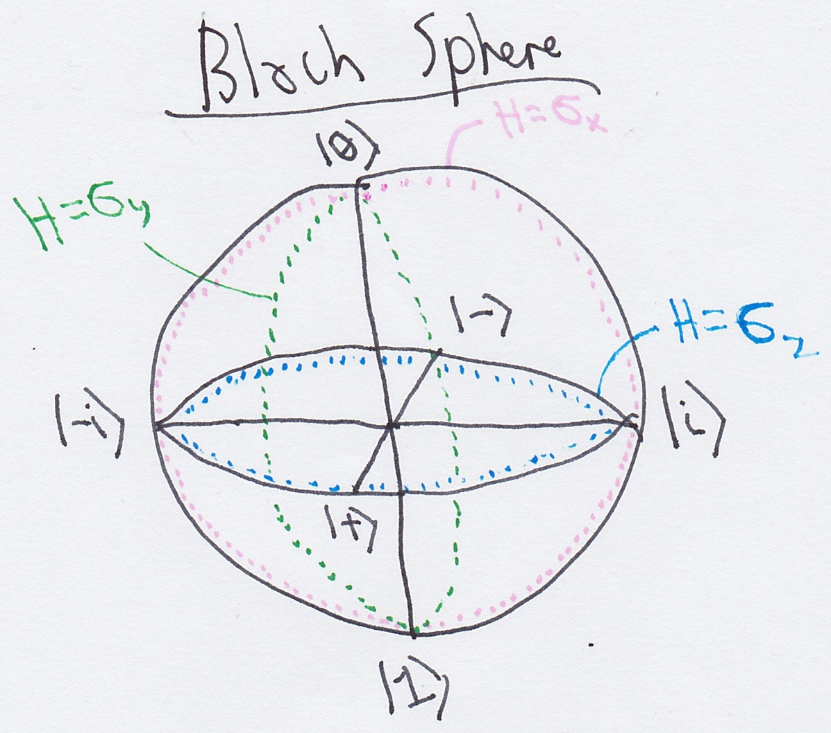 Bloch Sphere
H=σₓ
|0⟩
H=σᵧ
|-⟩
H=σ_z
|-i⟩
|i⟩
|+⟩
|1⟩